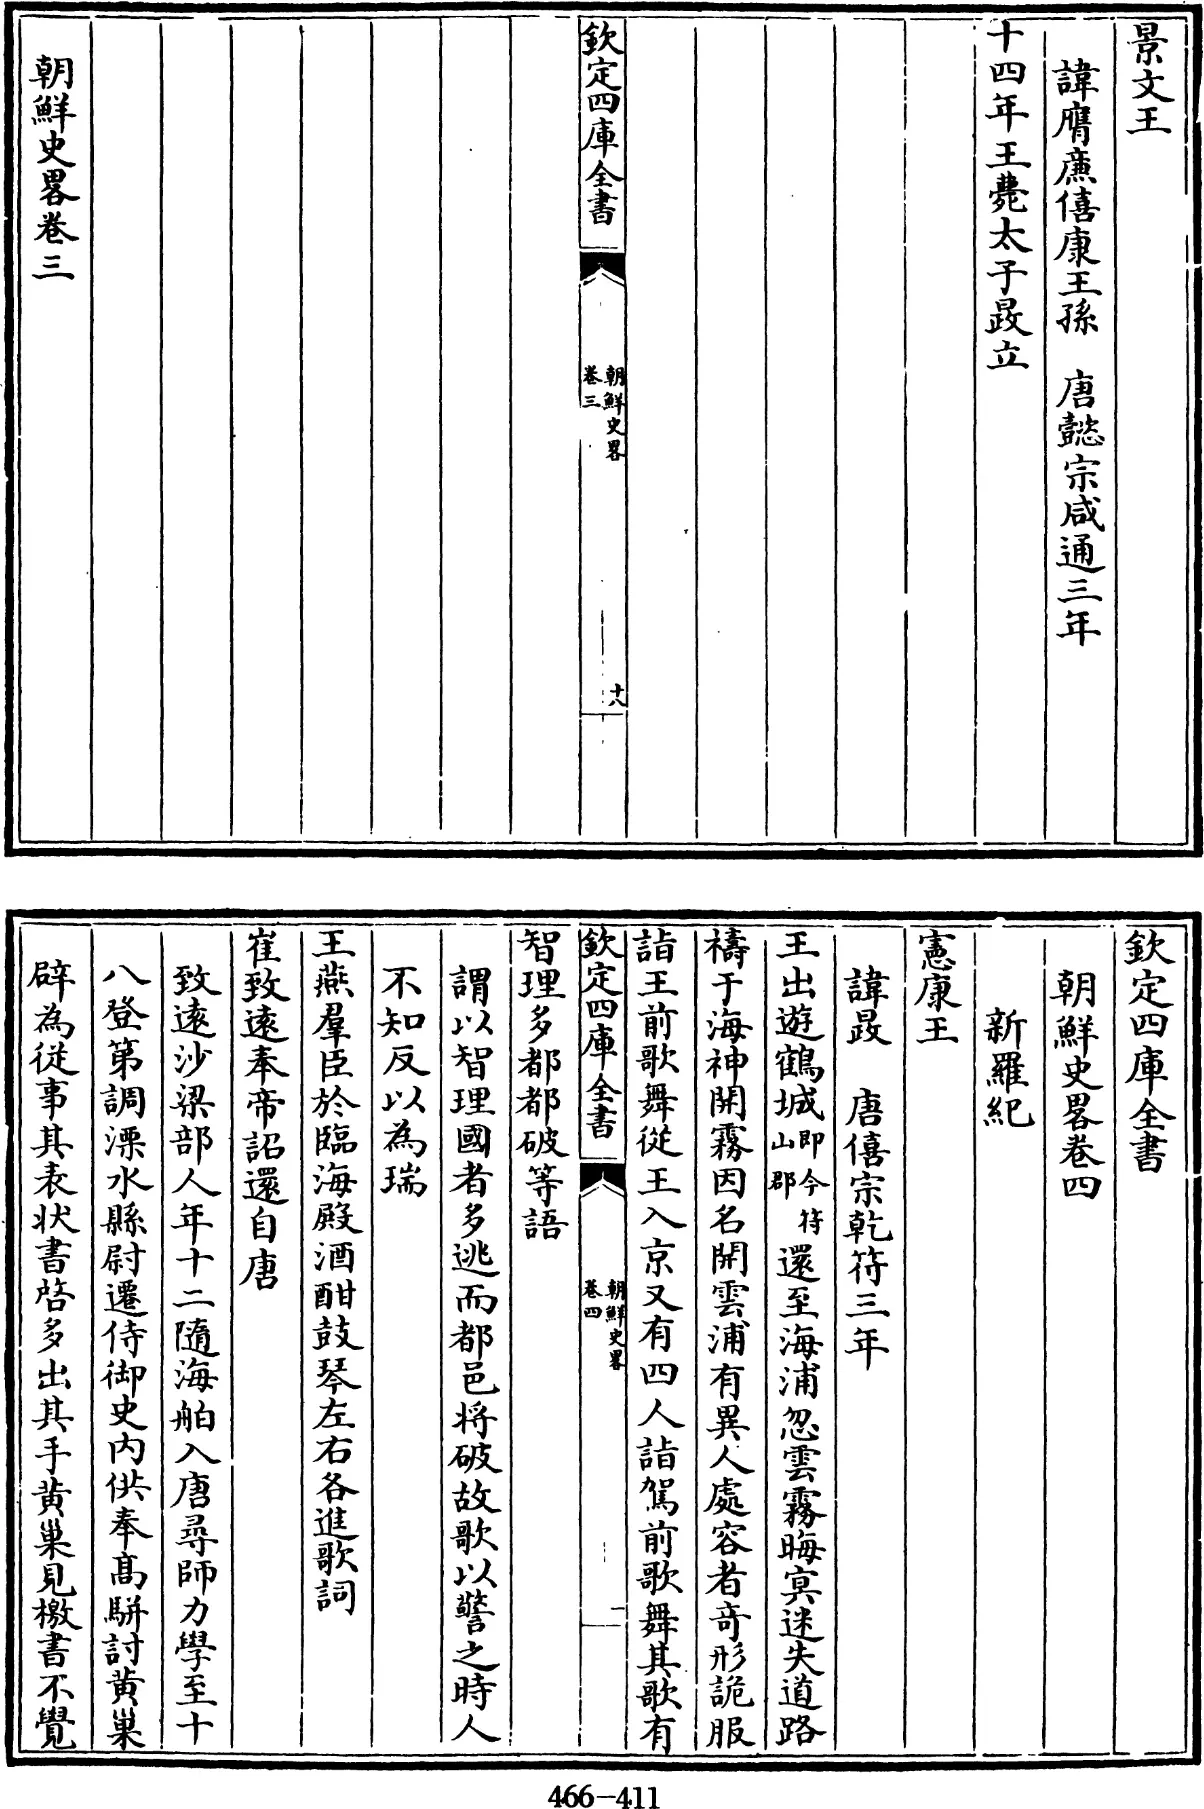 景文王
諱膺㢘僖康王孫　唐懿宗咸通三年
十四年王薨太子晸立
欽定四庫全書
朝鮮史畧
卷三
十八
朝鮮史畧卷三
欽定四庫全書
朝鮮史畧卷四
新羅紀
憲康王
諱晸　唐僖宗乾符三年
王出遊鶴城即今符山郡還至海浦忽雲霧晦冥迷失道路
禱于海神開霧因名開雲浦有異人處容者奇形詭服
詣王前歌舞從王入京又有四人詣駕前歌舞其歌有
欽定四庫全書
朝鮮史畧
卷四
一
智理多都都破等語
謂以智理國者多逃而都邑將破故歌以警之時人
不知反以為瑞
王燕羣臣於臨海殿酒酣鼓琴左右各進歌詞
崔致遠奉帝詔還自唐
致遠沙梁部人年十二隨海舶入唐尋師力學至十
八登第調溧水縣尉遷侍御史内供奉高駢討黄巢
辟為從事其表狀書啓多出其手黄巢見檄書不覺
466-411